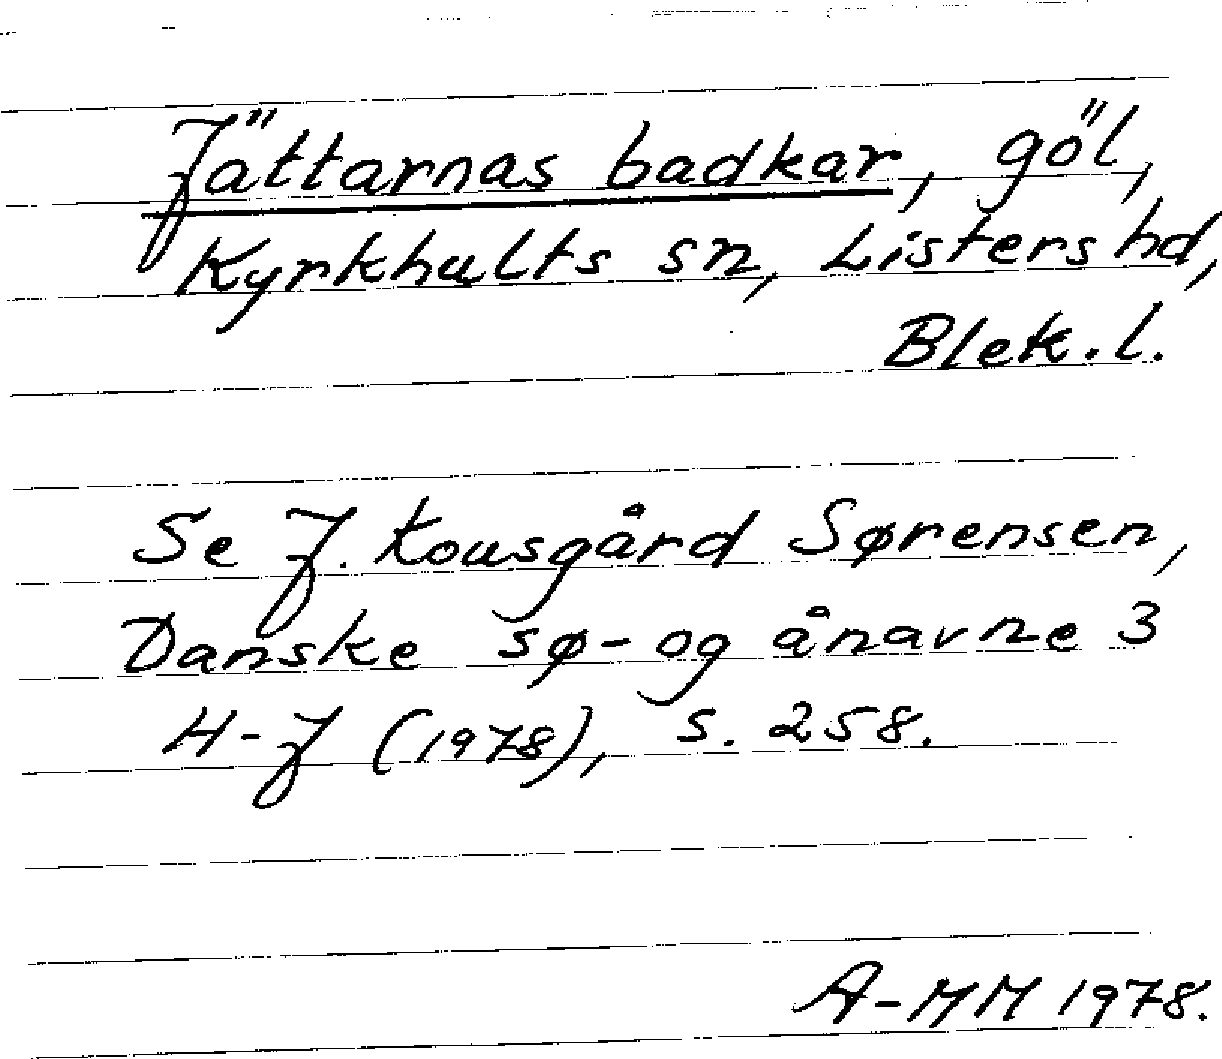 Jättarnas badkar, göl,
Kyrkhults sn, Listers hd,
Blek. l.
Se J. Kousgård Sørensen,
Danske sø- og ånavne 3
H-J (1978), s. 258.
A-MM 1978.